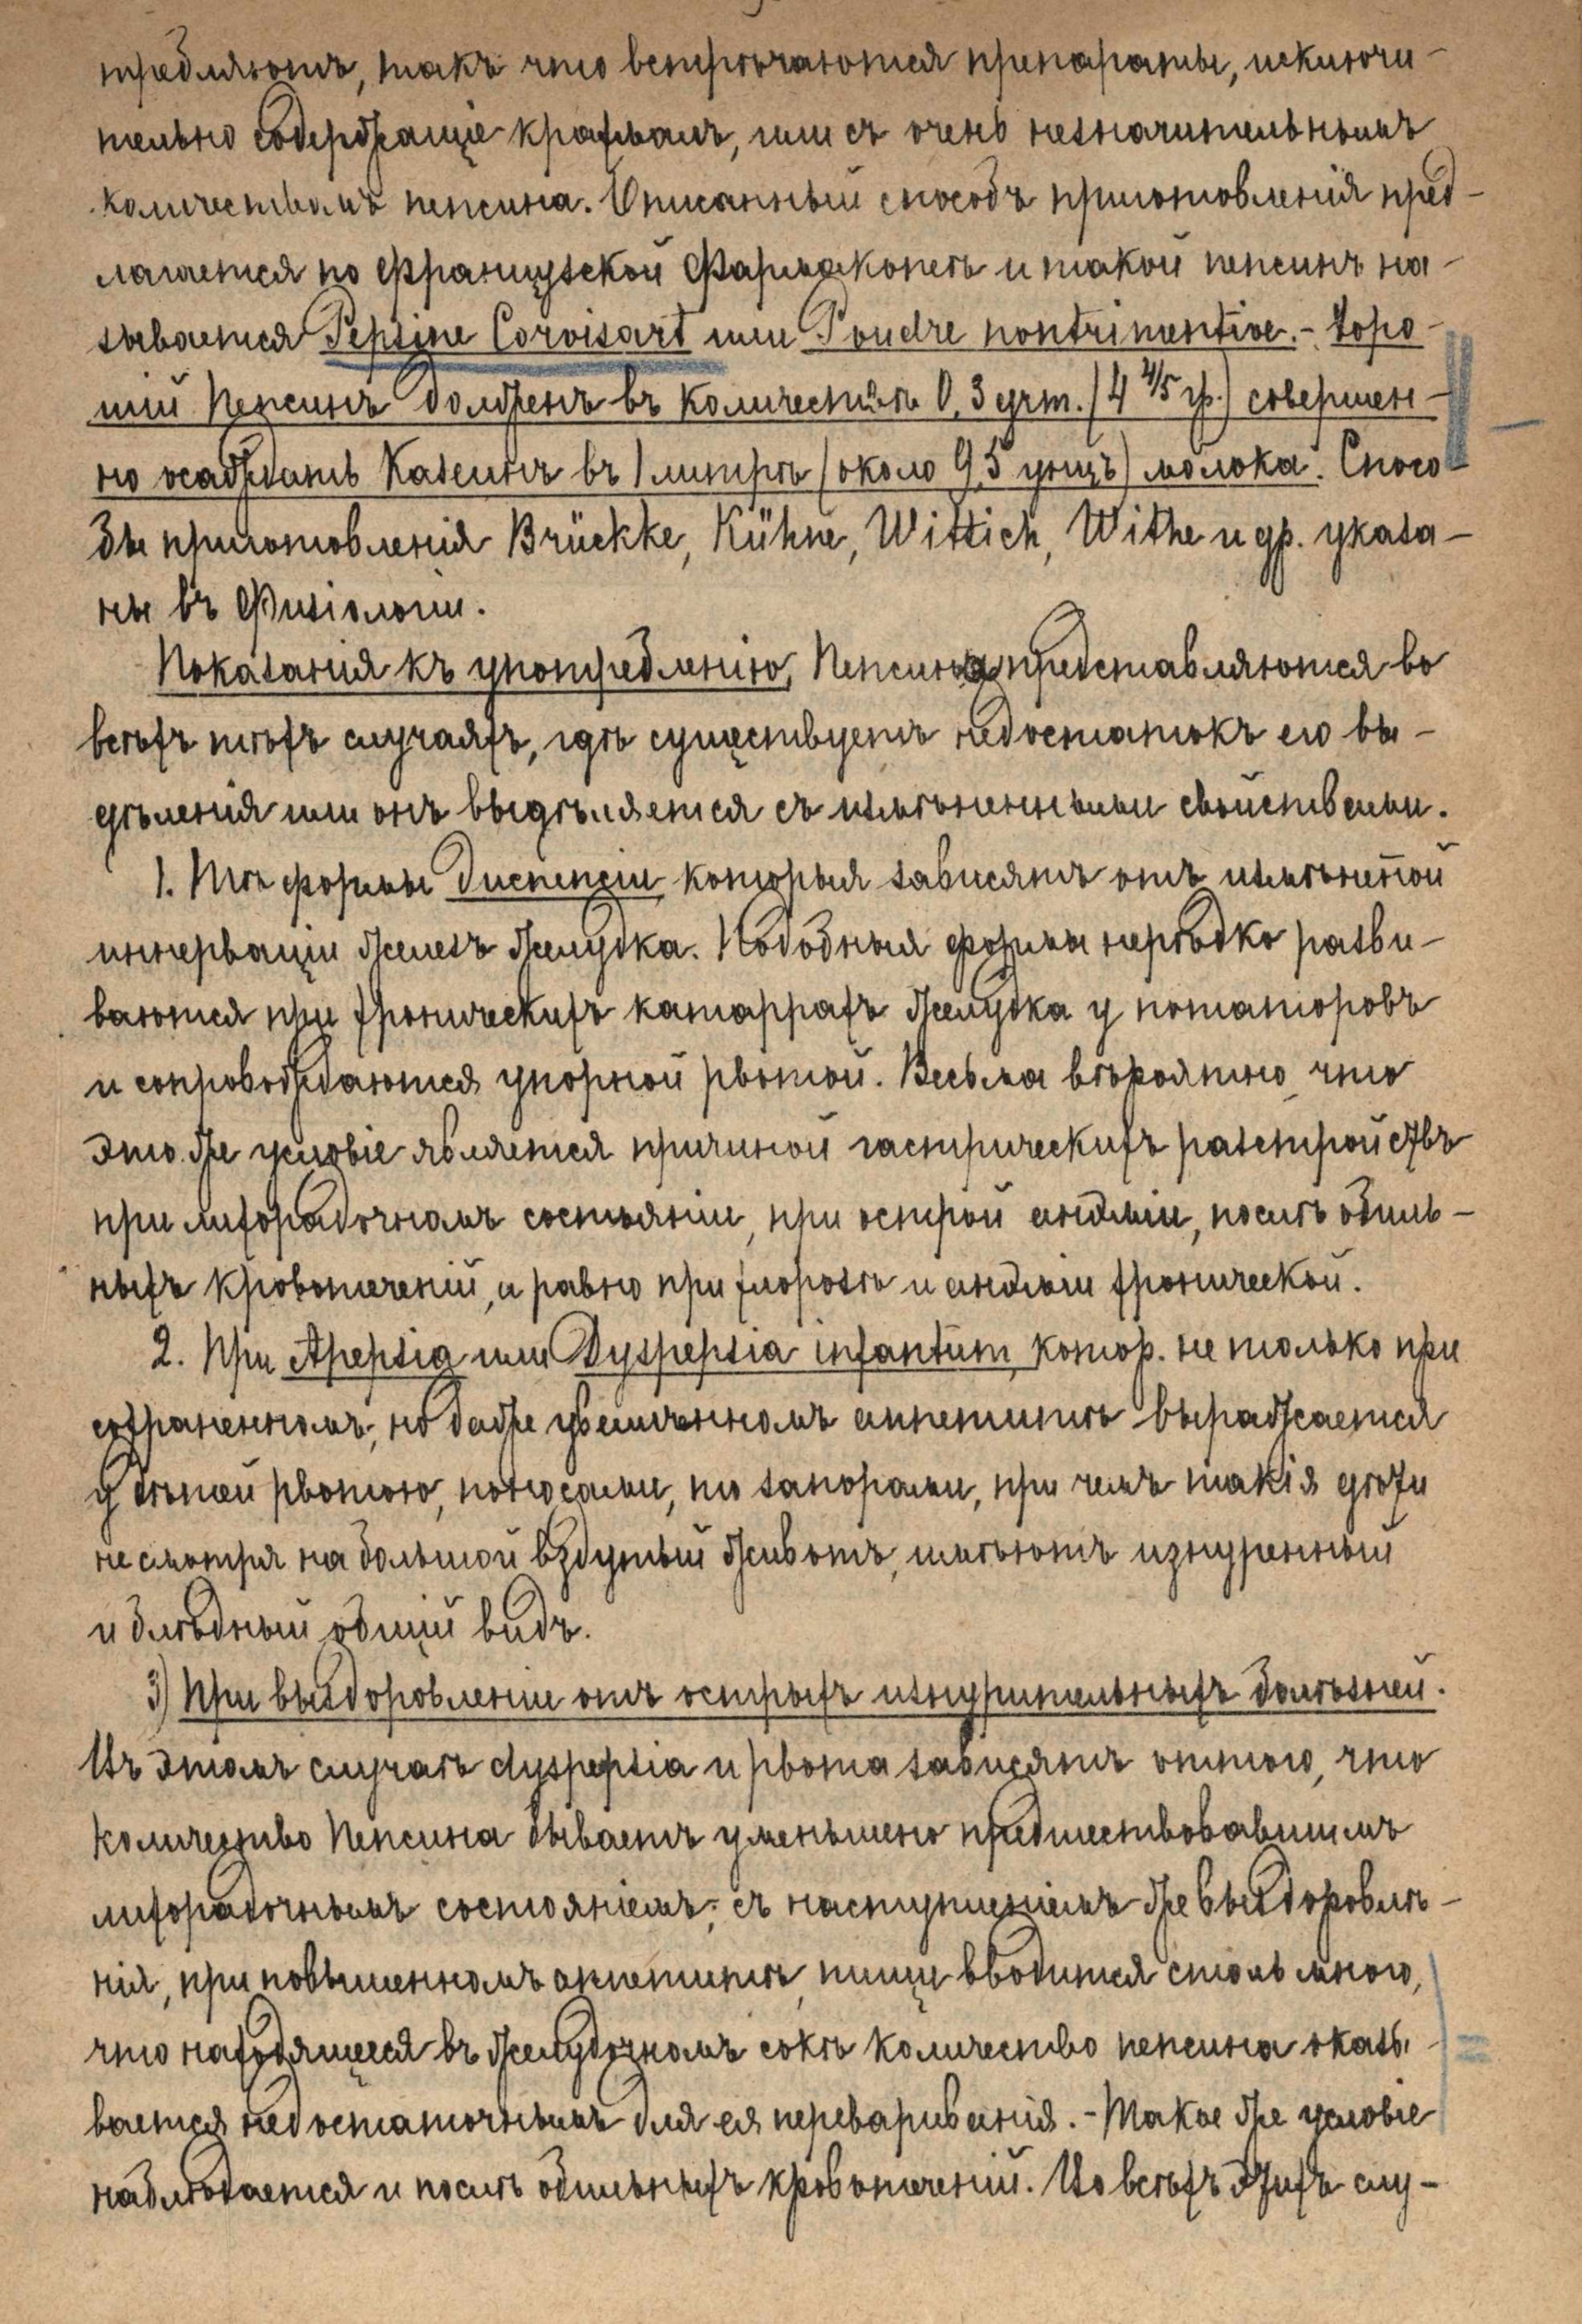 требляютъ, такъ что встрѣчаются препараты, исключи-
тельно содержащіе крахмалъ, или съ очень незначительнымъ
количествомъ пепсина. Описанный способъ приготовленія пред-
лагается по Французской Фармакопеѣ и такой пепсинъ на-
зывается Pepsine Corvisart или Poudre nontrimentive. - Хоро-
шій Пепсинъ долженъ въ количествѣ 0,3 grm. (4 4/5 гр.) совершен-
но осаждать Казеинъ въ 1 литрѣ (около 9,5 унцъ) молока. Спосо-
бы приготовленія Brückke, Kühne, Wittich, Withe и др. указа-
ны въ Физіологіи.
Показанія къ употребленію, Пепсина представляются во
всѣхъ тѣхъ случаяхъ, гдѣ существуетъ недостатокъ его вы-
дѣленія или онъ выдѣляется съ измѣненными свойствами.
1. Тѣ формы диспепсіи которыя зависятъ отъ измѣненной
иннерваціи железъ желудка. Подобныя формы нерѣдко разви-
ваются при хроническихъ катаррахъ желудка у потаторовъ
и сопровождаются упорной рвотой. Весьма вѣроятно, что
это же условіе является причиной гастрическихъ разстройствъ
при лихорадочномъ состояніи, при острой анэміи, послѣ обиль-
ныхъ кровотеченій, и равно при хлорозѣ и анэміи хронической.
2. При Apepsia или Dyspepsia infantum, котор. не только при
сохраненномъ, но даже увеличенномъ аппетитѣ выражается
у дѣтей рвотою, поносами, то запорами, при чемъ такія дѣти
не смотря на большой вздутый животъ, имѣютъ изнуренный
и блѣдный общій видъ.
3) При выздоровленіи отъ острыхъ изнурительныхъ болѣзней.
Въ этомъ случаѣ dyspepsia и рвота зависятъ оттого, что
количество Пепсина бываетъ уменьшено предшествовавшимъ
лихорадочнымъ состояніемъ; съ наступленіемъ же выздоровлѣ-
нія, при повышенномъ аппетитѣ, пищи вводится столь много,
что находящееся въ желудочномъ сокѣ количество пепсина оказы-
вается недостаточнымъ для ея перевариванія. - Такое же условіе
наблюдается и послѣ обильныхъ кровотеченій. Во всѣхъ этихъ слу-